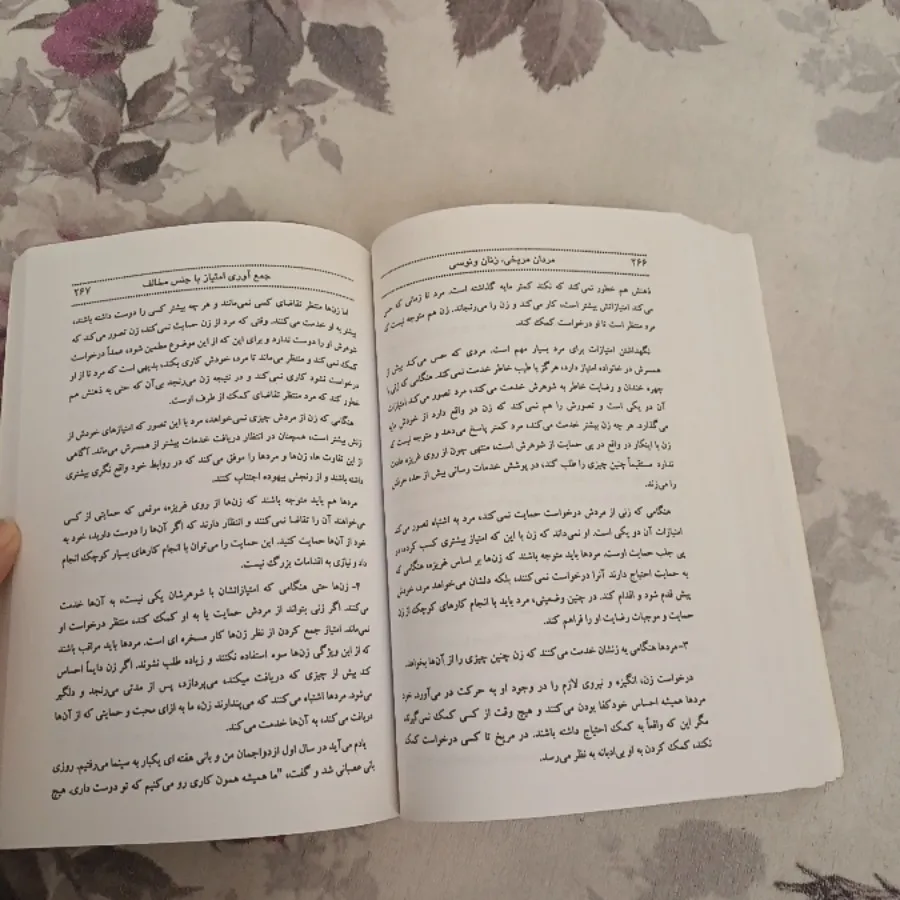 ۲۶۶
مردان مریخی، زنان ونوسی
ذهنش هم خطور نمی‌کند که نکند کمتر مایه گذاشته است. مرد تا زمانی که حس
می‌کند امتیازاتش بیشتر است، کار می‌کند و زن را می‌رنجاند. زن هم متوجه نیست که
مرد منتظر است تا او درخواست کمک کند.
نگهداشتن امتیازات برای مرد بسیار مهم است. مردی که حس می‌کند بیش از
همسرش در خانواده امتیاز دارد، هرگز با طیب خاطر خدمت نمی‌کند. هنگامی که زنی با
چهره خندان و رضایت خاطر به شوهرش خدمت می‌کند، مرد تصور می‌کند امتیازات
آن دو یکی است و تصورش را هم نمی‌کند که زن در واقع دارد از خودش مایه
می‌گذارد. هر چه زن بیشتر خدمت می‌کند، مرد کمتر پاسخ می‌دهد و متوجه نیست که
زن با اینکار در واقع در پی حمایت از شوهرش است، منتهی چون از روی غریزه عادت
ندارد مستقیماً چنین چیزی را طلب کند، در پوشش خدمات رسانی بیش از حد، حرفش
را می‌زند.
هنگامی که زنی از مردش درخواست حمایت نمی‌کند، مرد به اشتباه تصور می‌کند
امتیازات آن دو یکی است. او نمی‌داند که زن با این که امتیاز بیشتری کسب کرده، در
پی جلب حمایت اوست. مردها باید متوجه باشند که زن‌ها بر اساس غریزه، هنگامی که
به حمایت احتیاج دارند آنرا درخواست نمی‌کنند، بلکه دلشان می‌خواهد مرد، خودش
پیش قدم شود و اقدام کند. در چنین وضعیتی، مرد باید با انجام کارهای کوچک از زن
حمایت و موجبات رضایت او را فراهم کند.
۳-مردها هنگامی به زنشان خدمت می‌کنند که زن چنین چیزی را از آن‌ها بخواهد.
درخواست زن، انگیزه و نیروی لازم را در وجود او به حرکت در می‌آورد. خود
مردها همیشه احساس خودکفا بودن می‌کنند و هیچ وقت از کسی کمک نمی‌گیرند
مگر این که واقعاً به کمک احتیاج داشته باشند. در مریخ تا کسی درخواست کمک
نکند، کمک کردن به او بی‌ادبانه به نظر می‌رسد.
جمع آوری امتیاز با جنس مخالف
۲۶۷
اما زن‌ها منتظر تقاضای کسی نمی‌مانند و هر چه بیشتر کسی را دوست داشته باشند،
بیشتر به او خدمت می‌کنند. وقتی که مرد از زن حمایت نمی‌کند، زن تصور می‌کند که
شوهرش او را دوست ندارد و برای این که از این موضوع مطمئن شود، عمداً درخواست
کمک نمی‌کند و منتظر می‌ماند تا مرد، خودش کاری بکند، بدیهی است که مرد تا از او
درخواست نشود کاری نمی‌کند و در نتیجه زن می‌رنجد بی‌آن که حتی به ذهنش هم
خطور کند که مرد منتظر تقاضای کمک از طرف اوست.
هنگامی که زن از مردش چیزی نمی‌خواهد، مرد با این تصور که امتیازهای خودش از
زنش بیشتر است، همچنان در انتظار دریافت خدمات بیشتر از همسرش می‌ماند. آگاهی
از این تفاوت ها، زن‌ها و مردها را موفق می‌کند که در روابط خود واقع نگری بیشتری
داشته باشند و از رنجش بیهوده اجتناب کنند.
مردها هم باید متوجه باشند که زن‌ها از روی غریزه، موقعی که حمایتی از کسی
می‌خواهند آن را تقاضا نمی‌کنند و انتظار دارند که اگر آن‌ها را دوست دارید، خود به
خود از آن‌ها حمایت کنید. این حمایت را می‌توان با انجام کارهای بسیار کوچک انجام
داد و نیازی به اقدامات بزرگ نیست.
۴- زن‌ها حتی هنگامی که امتیازاتشان با شوهرشان یکی نیست، به آن‌ها خدمت
می‌کنند. اگر زنی بتواند از مردش حمایت یا به او کمک کند، منتظر درخواست او
نمی‌ماند. امتیاز جمع کردن از نظر زن‌ها کار مسخره ای است. مردها باید مراقب باشند
که از این ویژگی زن‌ها سوء استفاده نکنند و زیاده طلب نشوند. اگر زن دایماً احساس
کند بیش از چیزی که دریافت میکند، می‌پردازد، پس از مدتی می‌رنجد و دلگیر
می‌شود. مردها اشتباه می‌کنند که می‌پندارند زن، ما به ازای محبت و حمایتی که از آن‌ها
دریافت می‌کند، به آن‌ها خدمت می‌کند.
یادم می‌آید در سال اول ازدواجمان من و بانی هفته ای یکبار به سینما می‌رفتیم. روزی
بانی عصبانی شد و گفت، "ما همیشه همون کاری رو می‌کنیم که تو دوست داری. هیچ